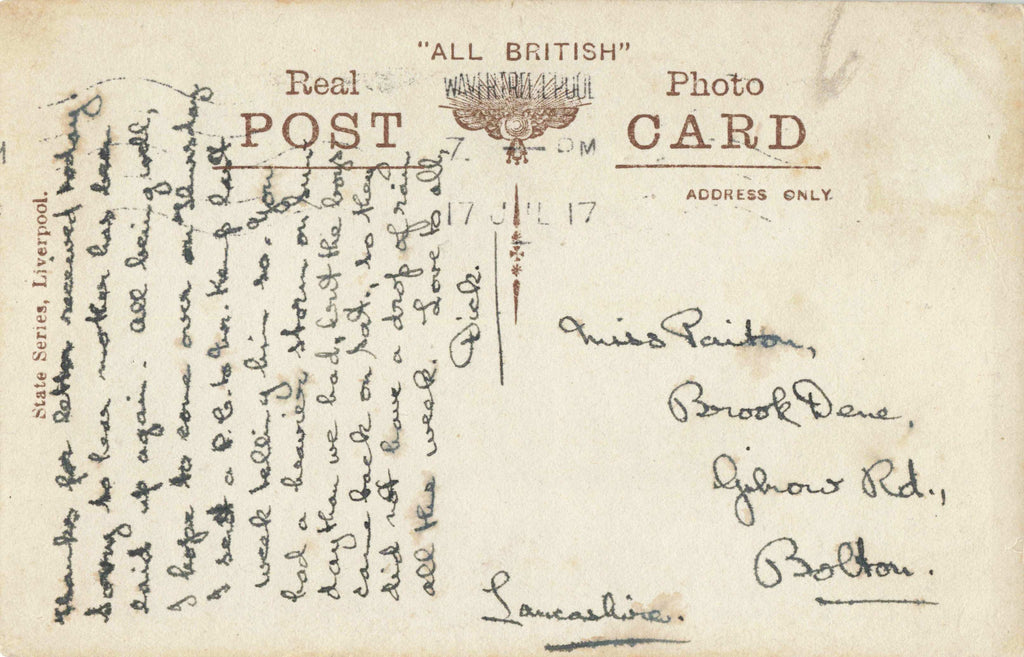 "ALL BRITISH"
Real Photo
POST CARD
ADDRESS ONLY.
State Series, Liverpool.
17 JUL 17
Thanks for letter received today
Sorry to hear mother has been
laid up again. All being well,
I hope to come over on Thursday
I sent a P.C. to Mr. Kemp last
week telling him so. You
had a heavier storm on your
day than we had, but the boys
came back on Sat., so they
did not have a drop of rain
all the week. Love to all,
Dick.
Miss Pariton,
Brook Dene,
Gilnow Rd.,
Bolton.
Lancashire.